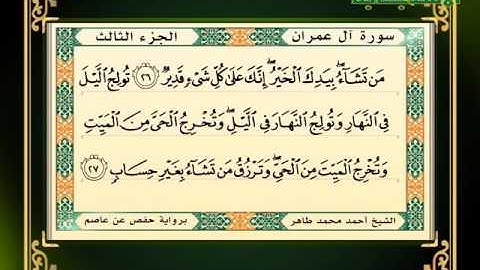 سورة آل عمران
الجزء الثالث
مَن تَشَآءُۖ بِيَدِكَ ٱلۡخَيۡرُۖ إِنَّكَ عَلَىٰ كُلِّ شَيۡءٖ قَدِيرٞ ٢٦ تُولِجُ ٱلَّيۡلَ
فِي ٱلنَّهَارِ وَتُولِجُ ٱلنَّهَارَ فِي ٱلَّيۡلِۖ وَتُخۡرِجُ ٱلۡحَيَّ مِنَ ٱلۡمَيِّتِ
وَتُخۡرِجُ ٱلۡمَيِّتَ مِنَ ٱلۡحَيِّۖ وَتَرۡزُقُ مَن تَشَآءُ بِغَيۡرِ حِسَابٖ ٢٧
الشيخ أحمد محمد طاهر
برواية حفص عن عاصم